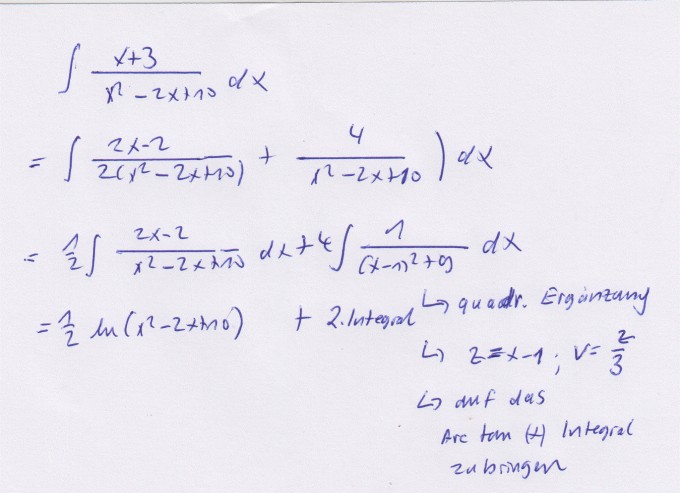 ∫ x+3 / x² – 2x+10 dx
= ∫ 2x-2 / 2(x² – 2x+10) + 4 / x² – 2x+10 ) dx
= 1/2 ∫ 2x-2 / x² – 2x+10 dx + 4 ∫ 1 / (x-1)²+9 dx
= 1/2 ln(x²-2x+10) + 2. Integral ↳ quadr. Ergänzung
↳ z = x-1 ; v = z/3
↳ auf das
Arc tan (x) Integral
zu bringen